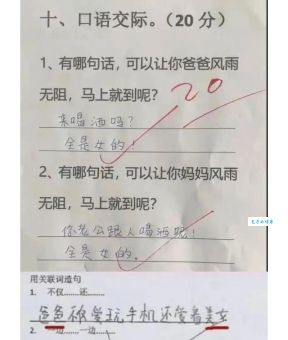 十、口语交际。（20 分）
1、有哪句话，可以让你爸爸风雨
无阻，马上就到呢？
20
来喝酒吗？
全是女的！
2、有哪句话，可以让你妈妈风雨
无阻，马上就到呢？
你老公跟人喝酒呢！
全是女的。
用关联词造句
1. 不仅……还……
爸爸不仅爱玩手机还爱看美女
2. 一边……一边……